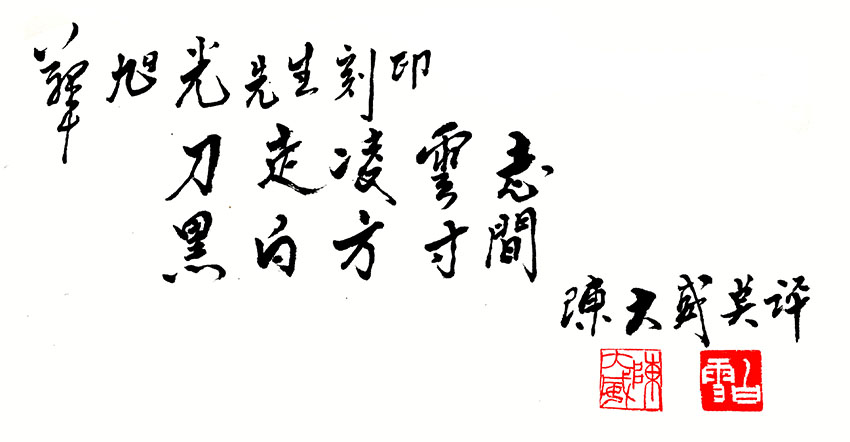 旭光先生刻印
刀走凌雲志
黑白方寸間
陳大威莫評
陳大威
白雪